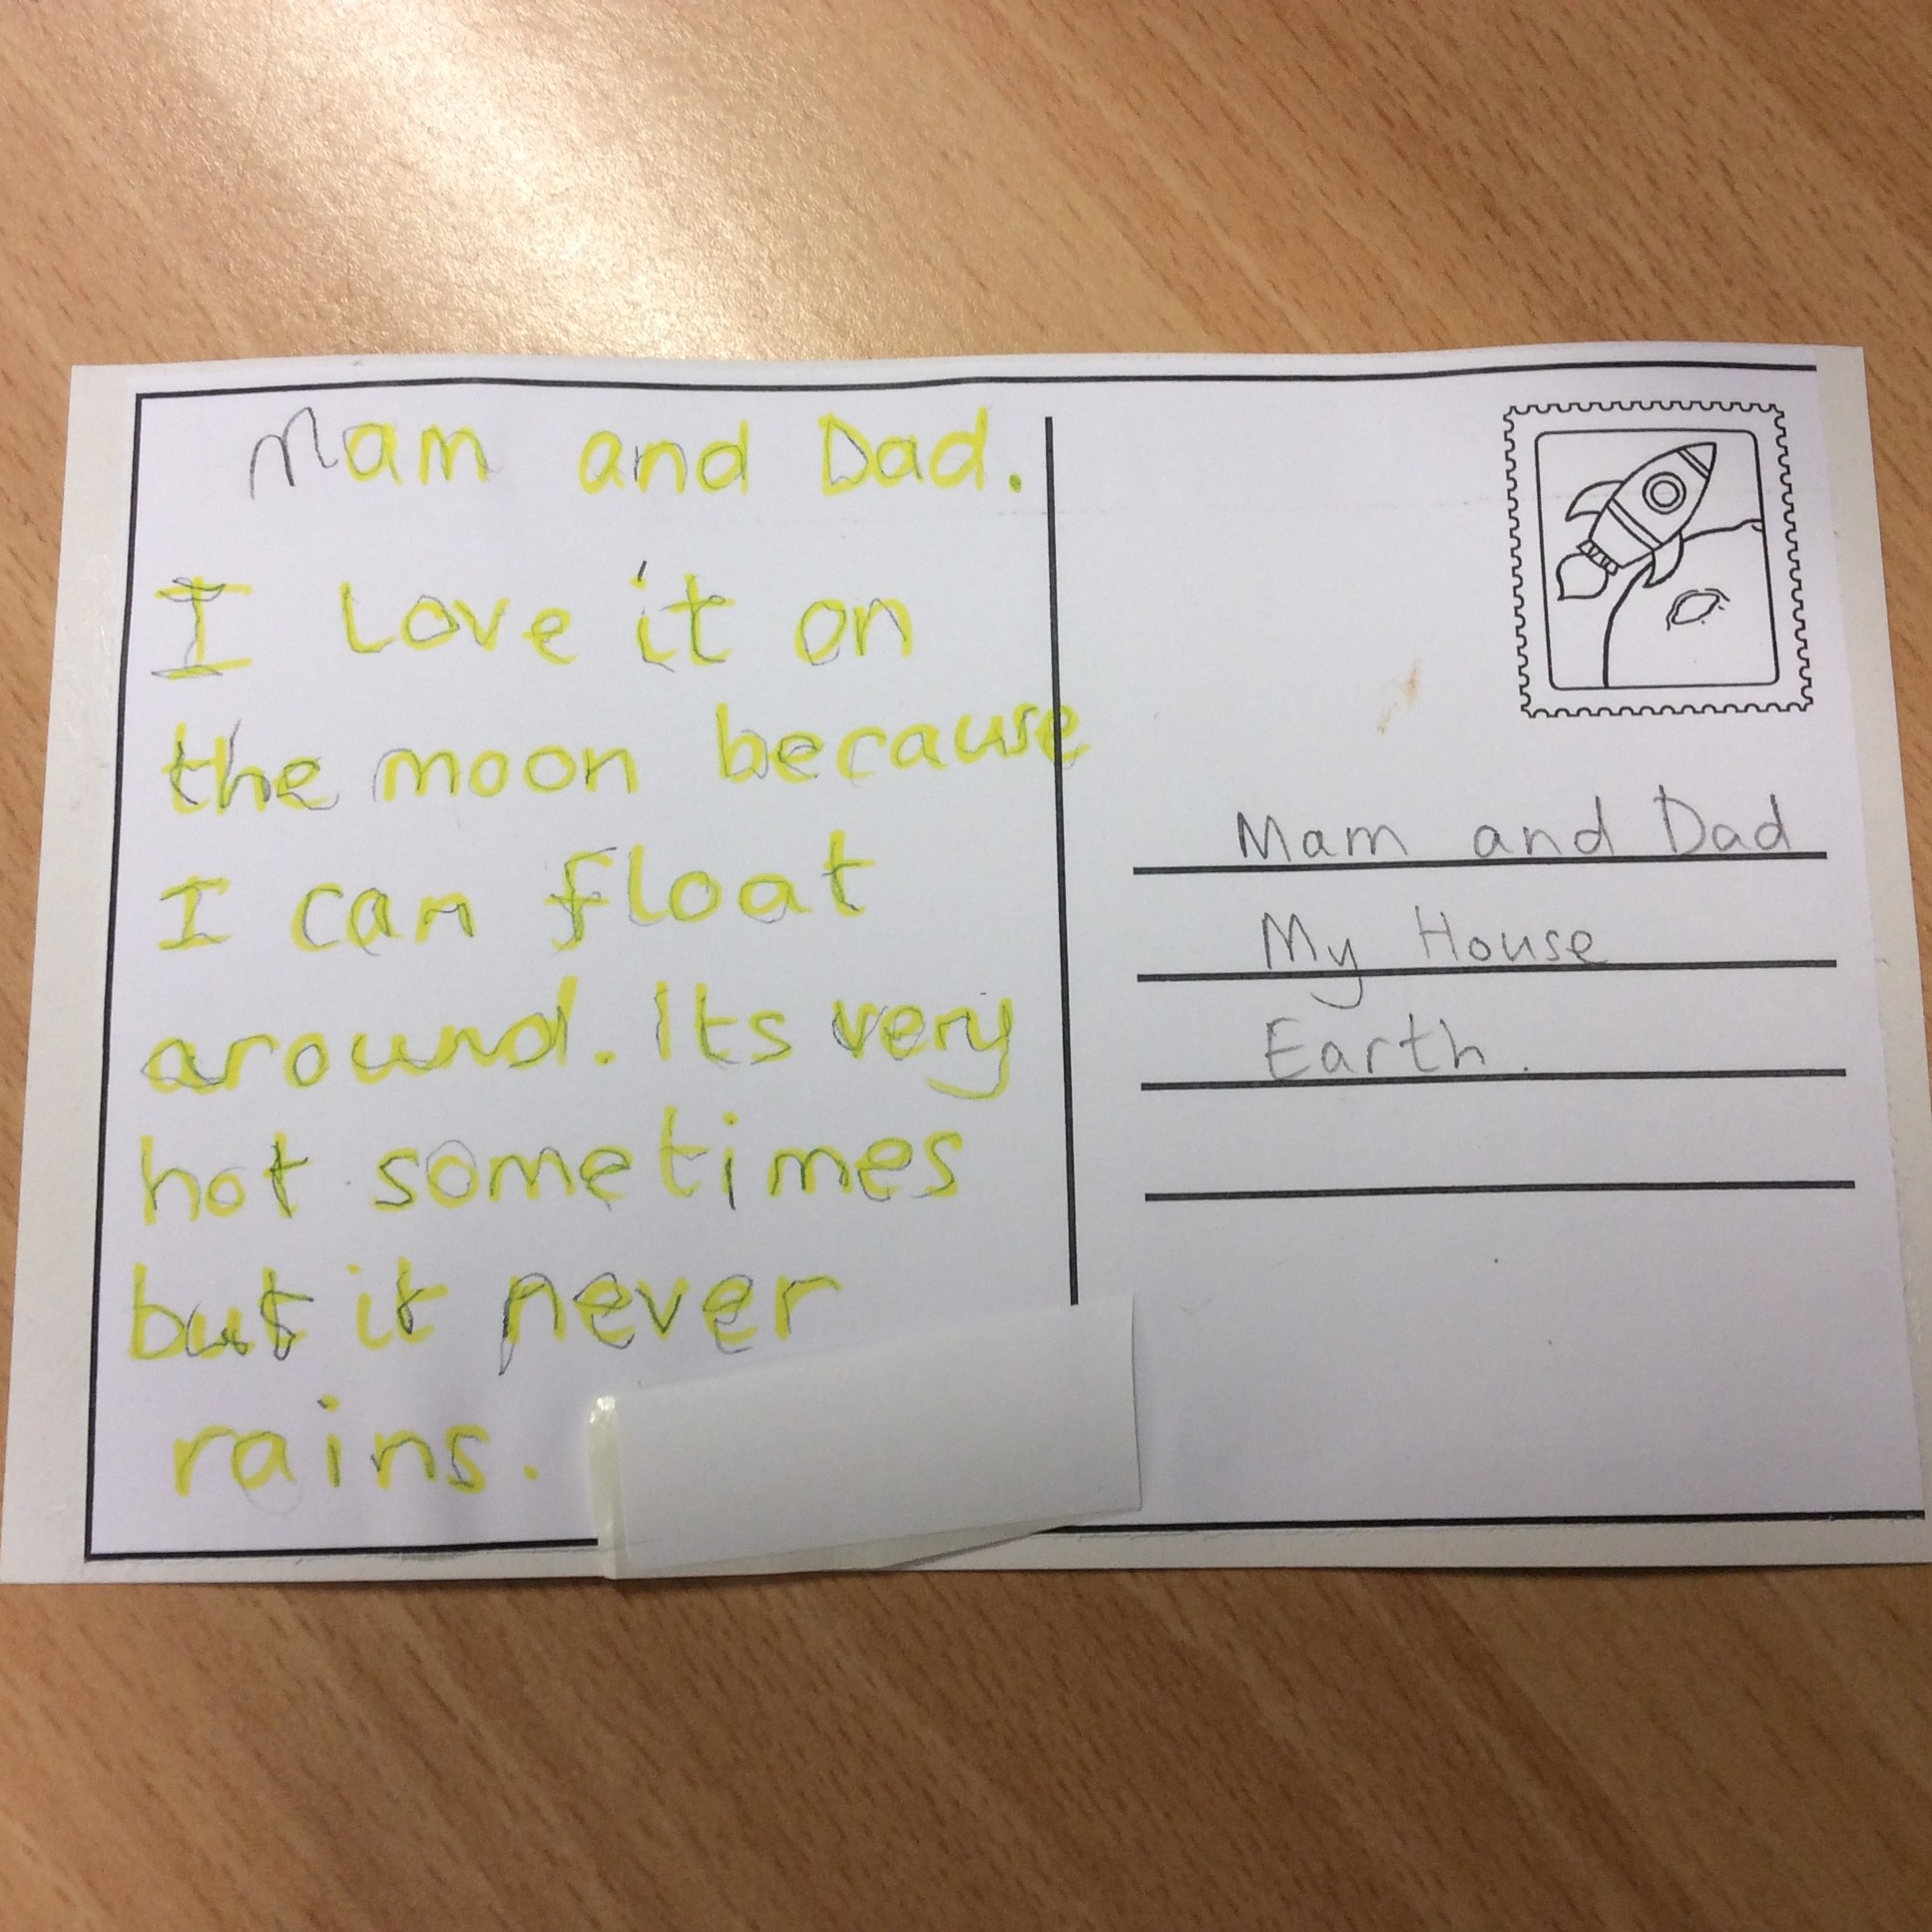 Mam and Dad.
I Love it on
the moon because
I can float
around. Its very
hot sometimes
but it never
rains.
Mam and Dad
My House
Earth.